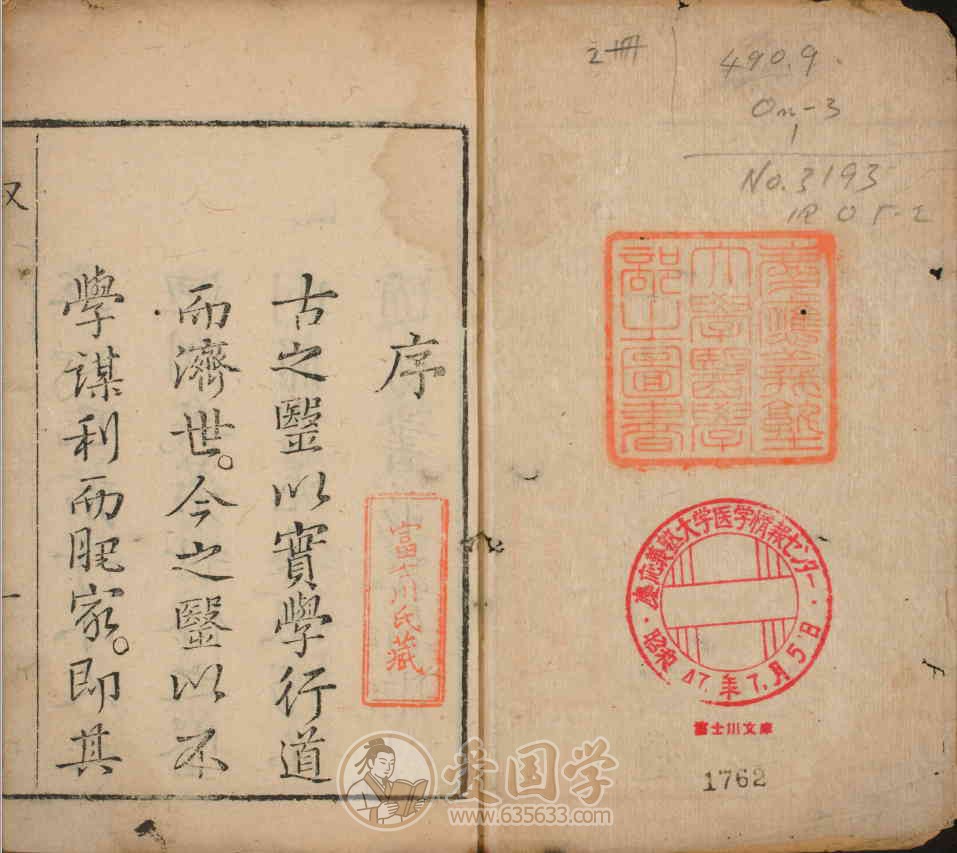 2冊
490.9
On-3
1
No.3193
慶應義塾
大學醫學
部之圖書
慶応義塾大学医学情報センター
昭和47.年7.月5.日
富士川文庫
1762
序
富士川氏藏
古之醫以實學行道
而濟世。今之醫以不
學謀利而肥家。即其
一
爱国学
www.635633.com